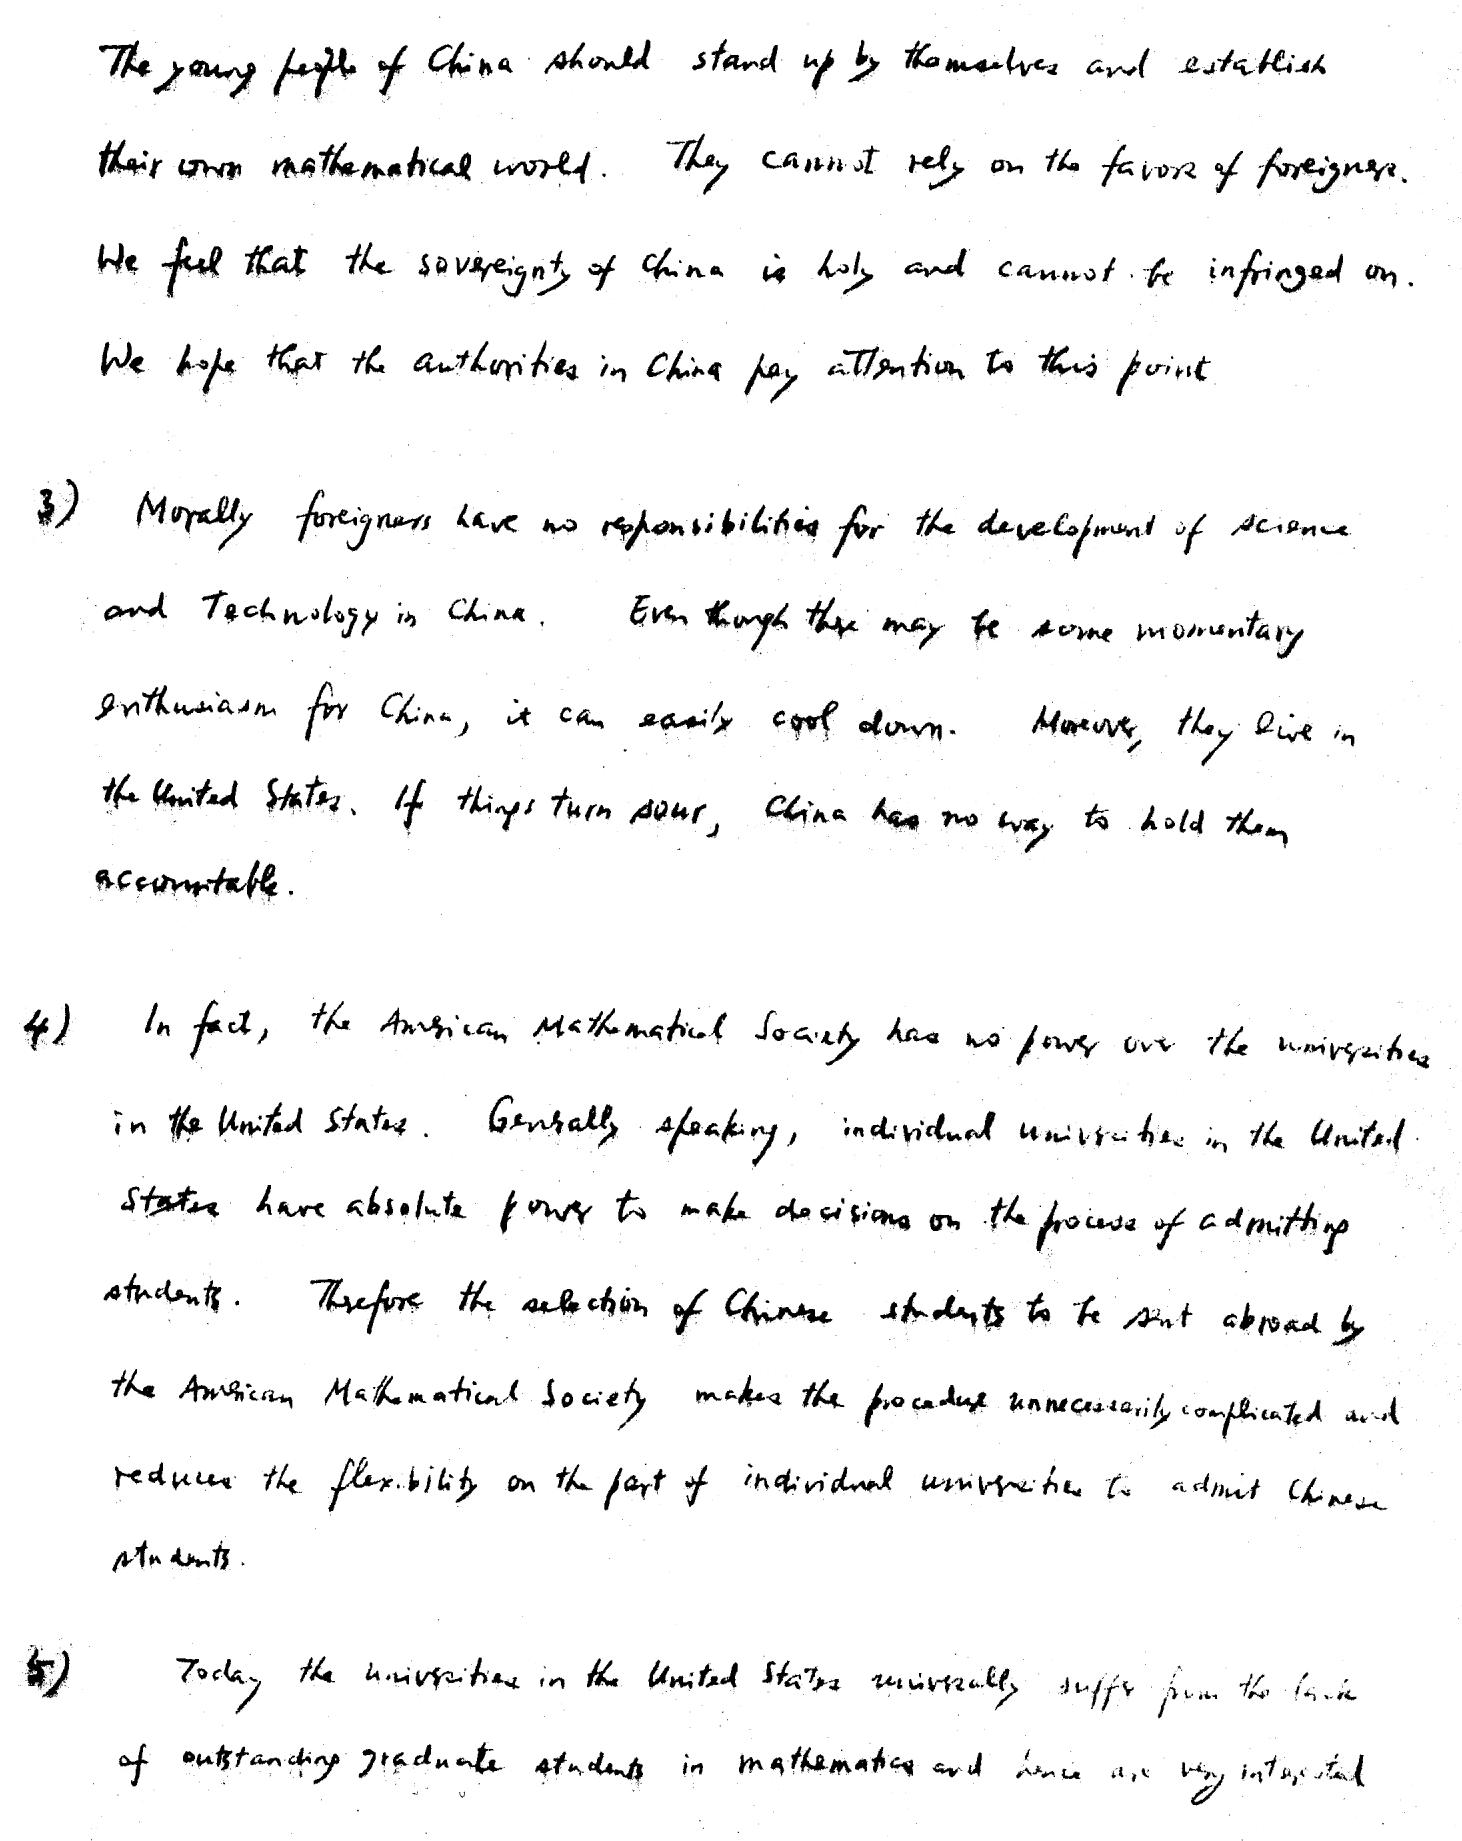 The young people of China should stand up by themselves and establish
their own mathematical world. They cannot rely on the favors of foreigners.
We feel that the sovereignty of China is holy and cannot be infringed on.
We hope that the authorities in China pay attention to this point
3) Morally foreigners have no responsibilities for the development of science
and Technology in China. Even though there may be some momentary
enthusiasm for China, it can easily cool down. Moreover, they live in
the United States. If things turn sour, China has no way to hold them
accountable.
4) In fact, the American Mathematical Society has no power over the universities
in the United States. Generally speaking, individual universities in the United
States have absolute power to make decisions on the process of admitting
students. Therefore the selection of Chinese students to be sent abroad by
the American Mathematical Society makes the procedure unnecessarily complicated and
reduces the flexibility on the part of individual universities to admit Chinese
students.
5) Today the universities in the United States universally suffer from the lack
of outstanding graduate students in mathematics and hence are very interested